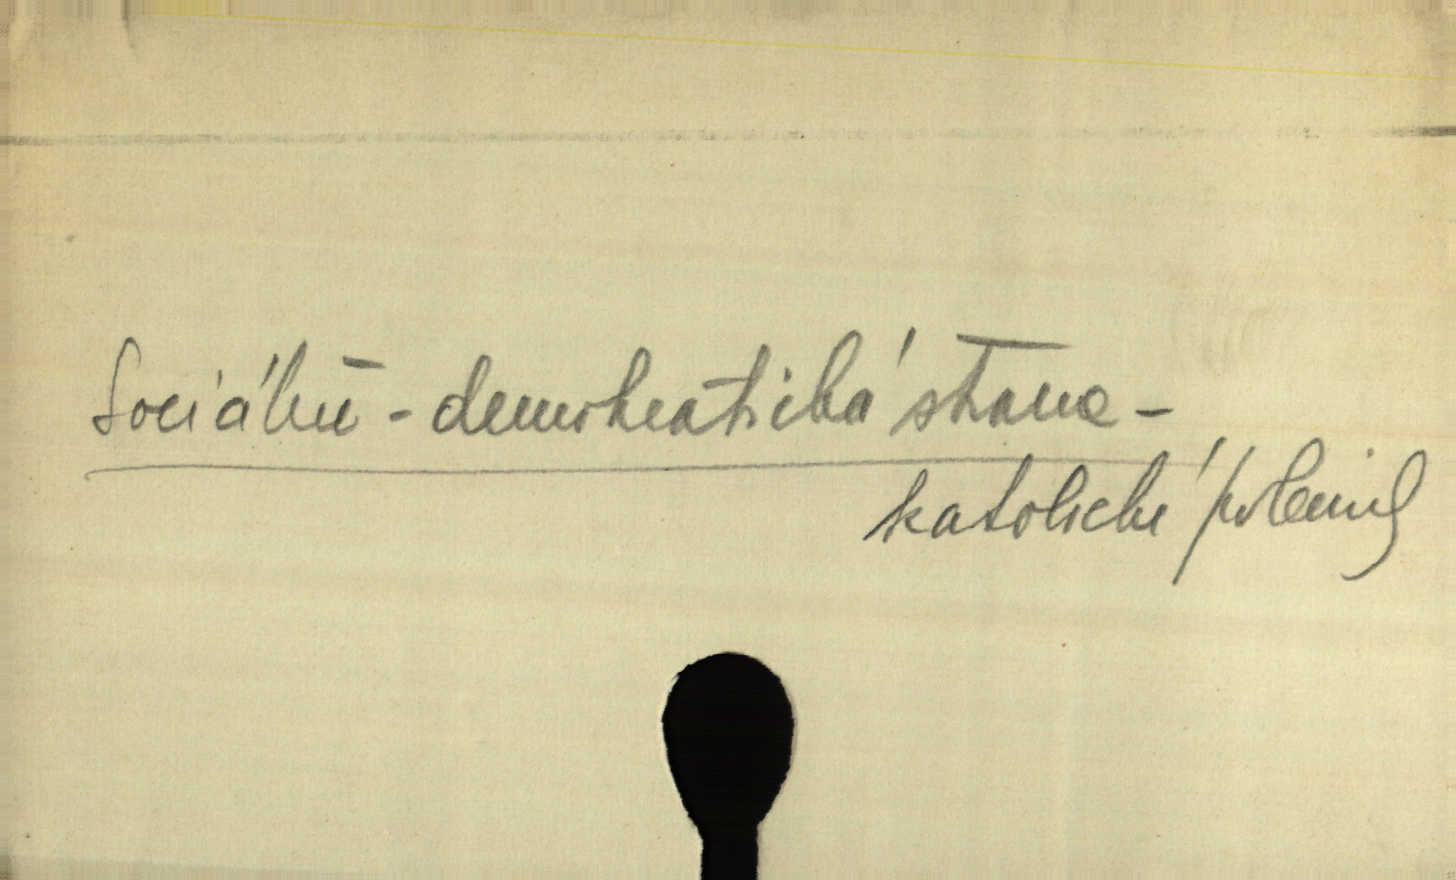 Sociálně-demokratická strana -
katolické polemiky